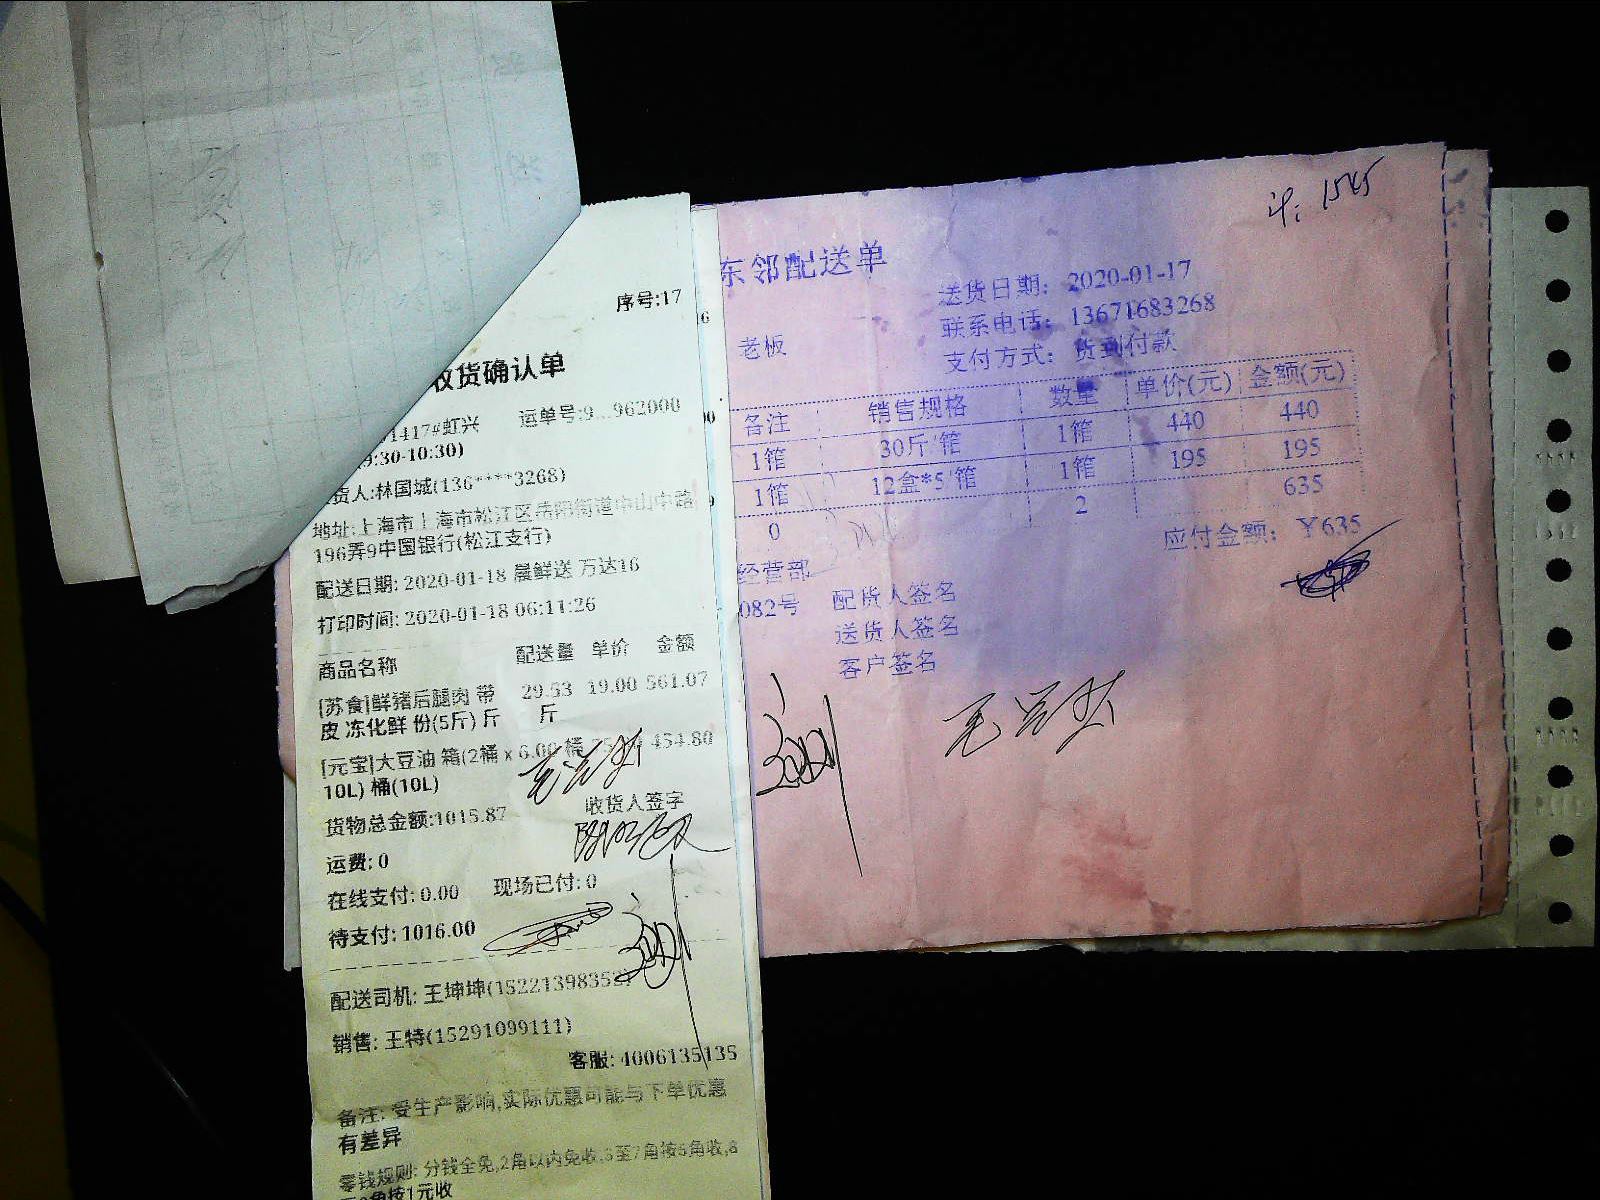 序号:17
收货确认单
1417#虹兴 运单号:9...962000
9:30-10:30)
货人:林国城(136****3268)
地址:上海市上海市松江区岳阳街道中山中路
196弄9中国银行(松江支行)
配送日期: 2020-01-18 晨鲜送 万达16
打印时间: 2020-01-18 06:11:26
商品名称 配送量 单价 金额
[苏食]鲜猪后腿肉 带 29.53 19.00 561.07
皮 冻化鲜 份(5斤) 斤 斤
[元宝]大豆油 箱(2桶 x 6.00 桶 454.80
10L) 桶(10L)
货物总金额:1015.87
收货人签字
运费: 0
在线支付: 0.00 现场已付: 0
待支付: 1016.00
配送司机: 王坤坤(15221398352)
销售: 王特(15291099111)
客服: 4006135135
备注: 受生产影响,实际优惠可能与下单优惠
有差异
零钱规则: 分钱全免,2角以内免收,3至7角按5角收,8
角按1元收
计: 1545
东邻配送单
送货日期: 2020-01-17
老板 联系电话: 13671683268
支付方式: 货到付款
备注 销售规格 数量 单价(元) 金额(元)
1箱 30斤/箱 1箱 440 440
1箱 12盒*5/箱 1箱 195 195
0 2 635
应付金额: ¥635
经营部
082号 配货人签名
送货人签名
客户签名